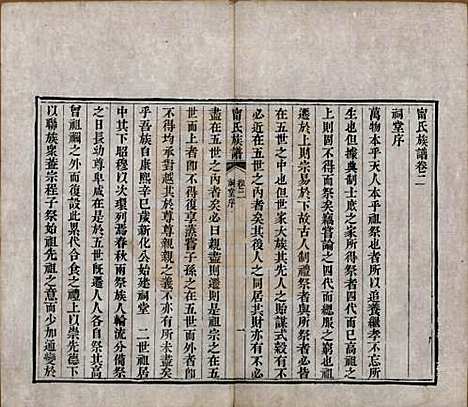 甯氏族譜卷二
祠堂序
萬物本乎天人本乎祖祭也者所以追養繼孝不忘所
生也但據典制士庶之祭止及四代而祭法四代巳高祖之
上則闕不得祭竊嘗論之四代而緦服之窮
遷於上則宗易於下故古人制禮祭者與所祭者必皆
在五世之中也但世家大族其人之貽謀式穀有不
必近在五世之內者矣其後人之同居其財亦有不
甯氏族譜 卷二 祠堂序 一
盡在五世之內者矣必曰親盡則遷則是祖宗之在五世
不得均承對越其於尊尊親親之義不亦有所未盡矣
乎吾族自康熙辛巳歲新化公始建祠堂 二世祖居
中其下昭穆以次環列焉春秋兩祭族人輪流分備祭
之日長幼尊卑咸在是於五世旣遷人人各自祭其高
曾祖禰之外而復設此累代合食之禮上以崇先德下
以聯族衆蓋宗程子祭始祖先祖之意而少加通變於